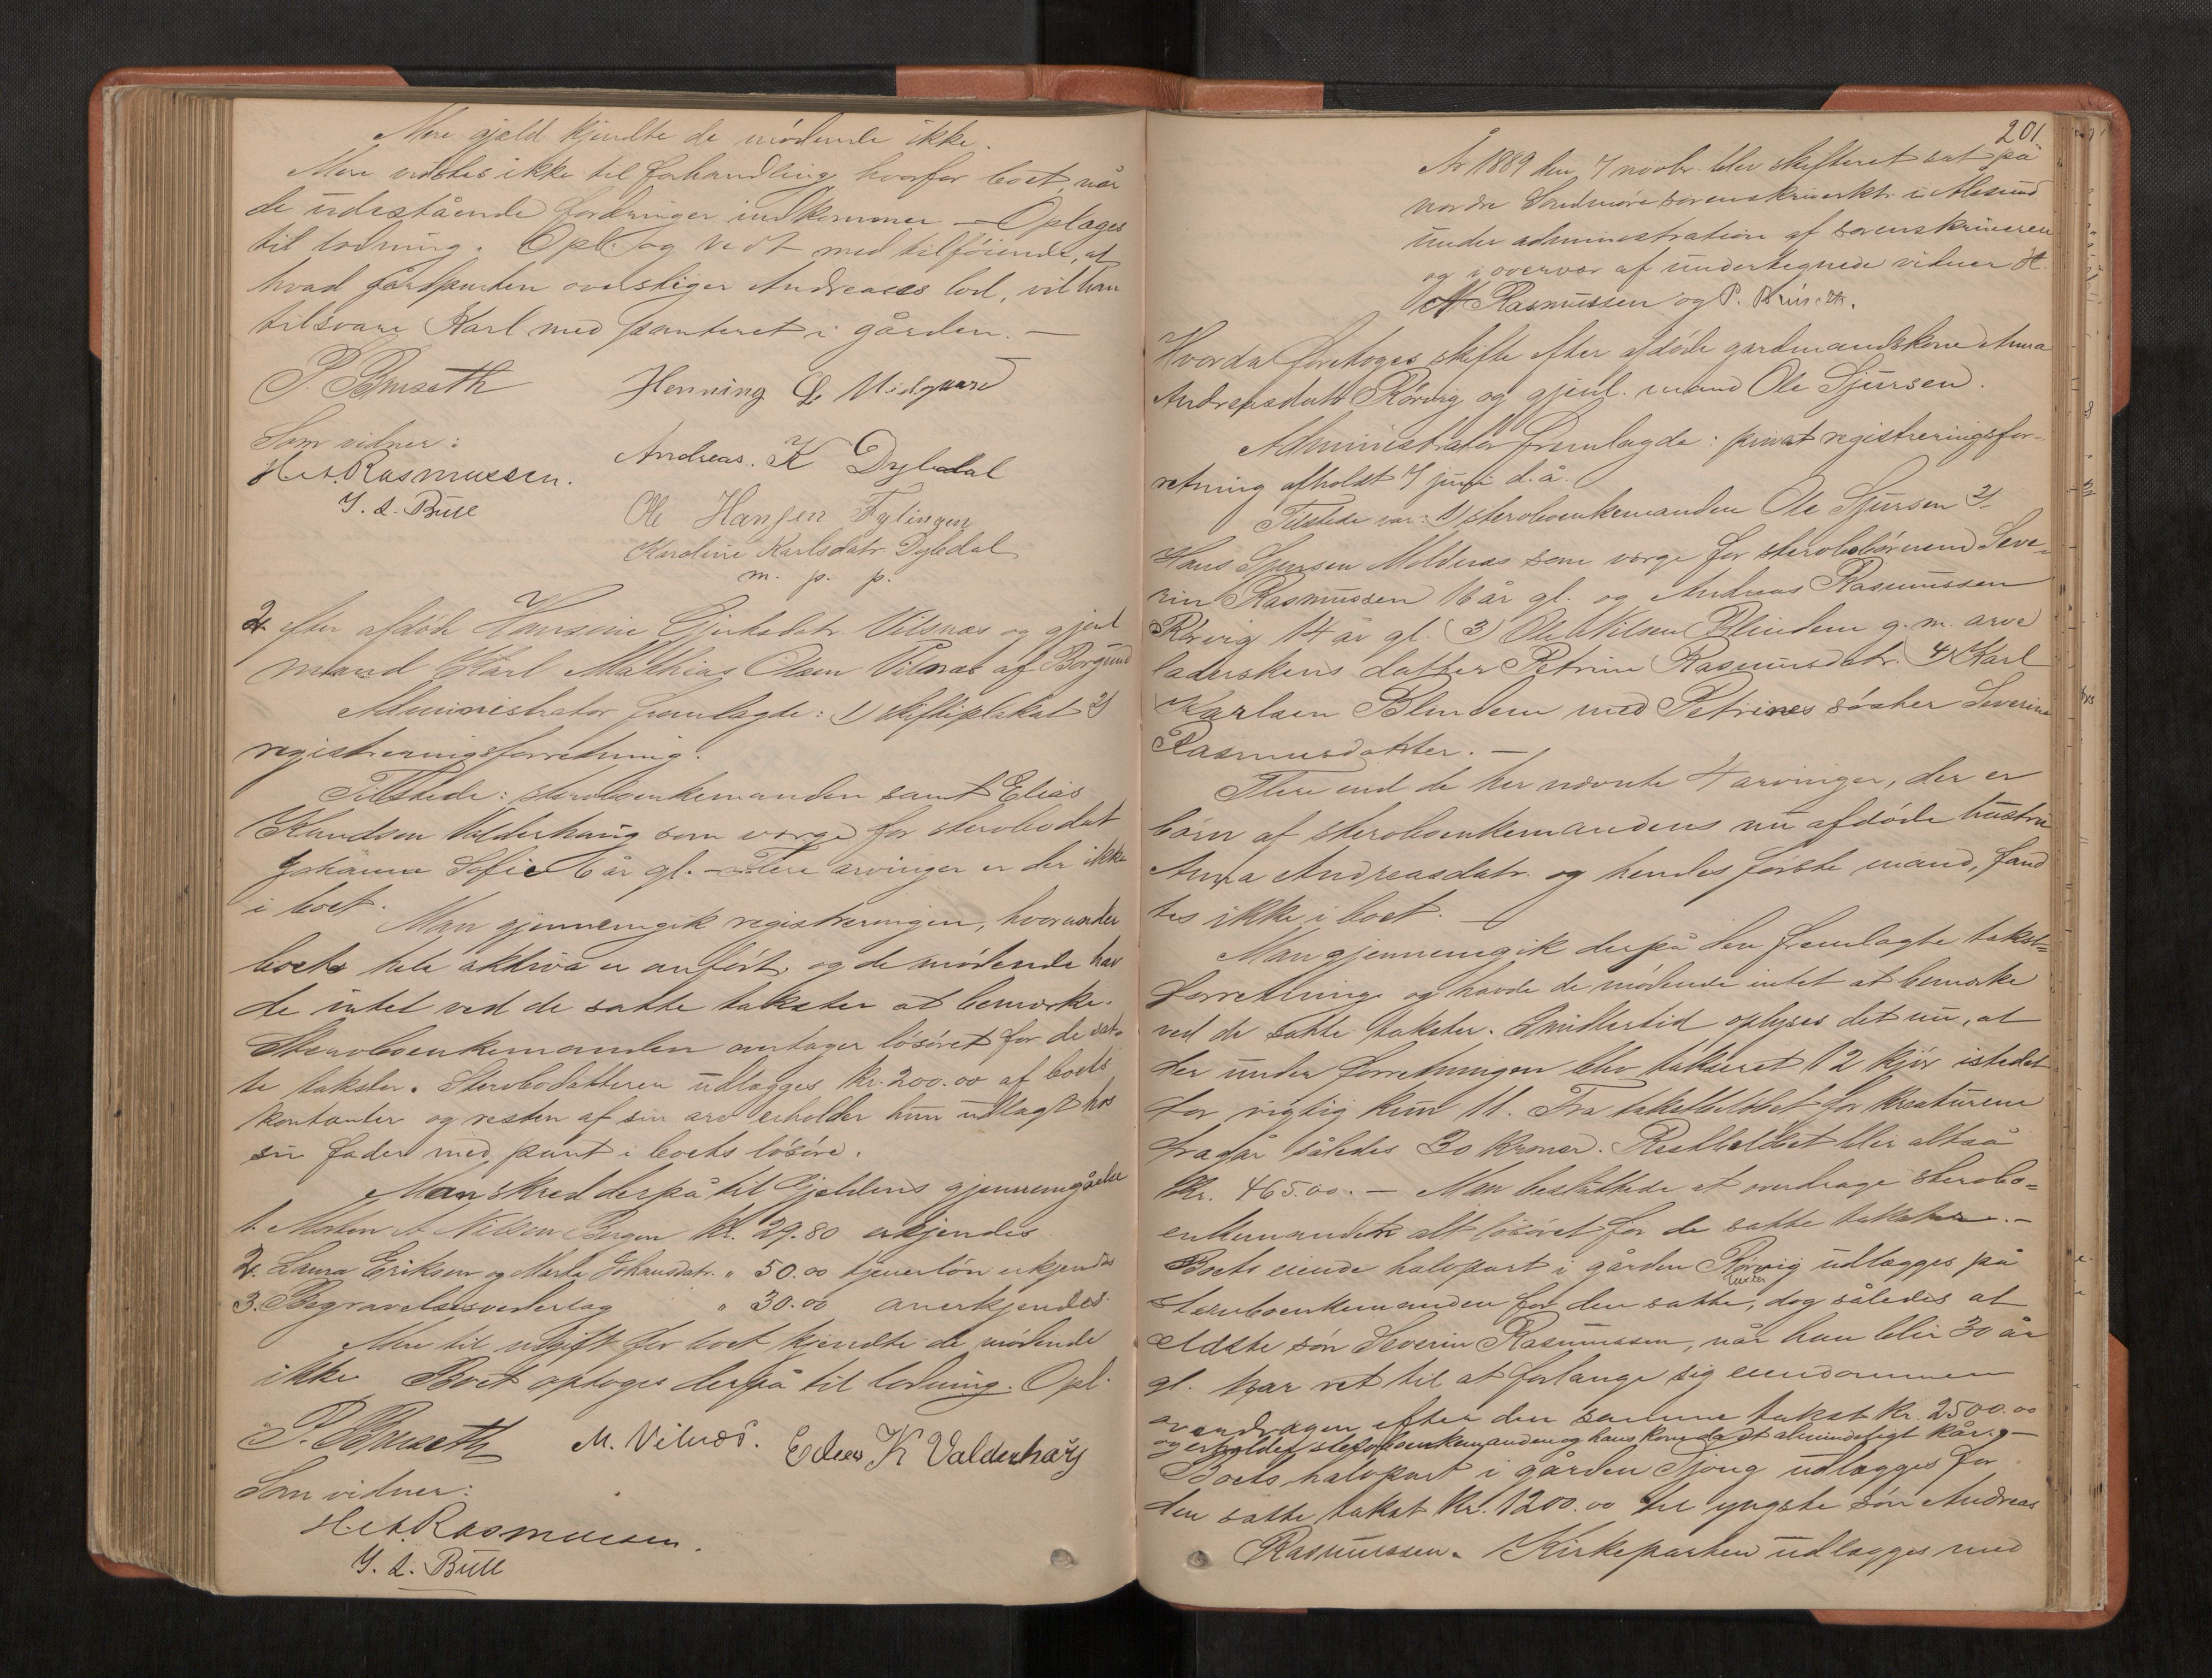 Mere gjæld kjendte de mødende ikke.
Mere vidstes ikke til forhandling hvorfor boet, når
de udestående fordringer indkommer – Optages
til lodning. Opl. og vedt med tilføiende, at
hvad gårdparten overstiger Andreases lod, vil han
tilsvare Karl med panteret i gården. –
P. Buseth Henning
Som vidner: Andreas. K Dybedal
H. A. Rasmussen.
Bull Ole Hansen Fylingen
Karoline Karlsdatr. Dybedal
m. p. p.
2. efter afdøde Hansine Vilsnæs og gjenl
mand Karl Mathias Olsen Vilnæs af Borgund
Administrator fremlagde: 1) Skifteplakat 2)
registreringsforretning.
Tilstede: sterboenkemanden samt Elias
Knudsen Valderhaug som værge for sterbodat
Johanna Sofie 6 år gl. – Flere arvinger er der ikke
i boet.
Man gjennemgik registreringen, hvorunder
boets hele aktiva er anført, og de mødende hav
de intet ved de satte takster at bemærke.
Sterboenkemanden antager løsøret for de sat-
te takster. Sterbodatteren udlægges kr. 200.00 af boets
kontanter og resten af sin arv erholder hun udlagt hos
sin fader med pant i boets løsøre.
Man skred derpå til Gjældens gjennemgåelse
1. Morten A Nilsen Bergen kr. 29.80 erkjendes
2. Laura Eriksen og Marta Johansdatr. " 50.00 tjenerløn erkjendes
3. Begravelsesvederlag " 30.00 anerkjendes
Mere til udgift for boet kjendte de mødende
ikke Boet optoges derpå til lodning. Opl.
P. Buseth M. Vilnæs. Elias K Valderhaug
Som vidner:
H. A. Rasmussen.
Bull
201.
År 1889 den 7 novbr. blev skifteret sat på
nordre Søndmøre sorenskriverktr. i Ålesund
under administration af sorenskriveren
og i overvær af undertegnede vidner H.
A Rasmussen og P.
Hvorda foretoges skifte efter afdøde gardmandskone Anna
Andreasdatr Rørvig og gjenl. mand Ole Sjursen.
Administrator fremlagde: privat registreringsfor-
retning afholdt 7 juni d. å.
Tilstede var: 1) sterboenkemanden Ole Sjursen 2)
Hans Sjursen Molnes som værge for sterbobørnene Seve-
rin Rasmussen 16 år gl. og Andreas Rasmussen
Rørvig 14 år gl. 3) Ole Nilsen Blindem g. m. arve
laderskens datter Petrine Rasmusdatr. 4) Karl
Karlsen Blindem med Petrines søster Severine
Rasmusdatter. –
Flere end de her nævnte 4 arvinger, der er
børn af sterboenkemandens nu afdøde hustru
Anna Andreasdatr. og hendes første mand, fand
tes ikke i boet. –
Man gjennemgik derpå den fremlagte takst-
forretning og havde de mødende intet at bemærke
ved de satte takster. Imidlertid oplyses det nu, at
der under forretningen blev takseret 12 kjør istedet
for rigtig kun 11. Fra takstbeløbet for kreaturene
fragår således 30 kroner. Restbeløbet blir altså
kr. 465.00. – Man besluttede at overdrage sterbo-
enkemanden alt løsøret for de satte takster. –
Boets eiende halvpart i gården Rørvig udlægges på
sterboenkemanden for den satte takst, dog således at
ældste søn Severin Rasmussen, når han blir 30 år
gl. har ret til at forlange sig eiendommen
overdragen efter den samme takst kr. 2500.00
og erholder sterboenkemanden og hans kone da et almindeligt kår. –
Boets halvpart i gården Tjong udlægges for
den satte takst kr. 1200.00 til yngste søn Andreas
Rasmussen. Kirkeparten udlægges med